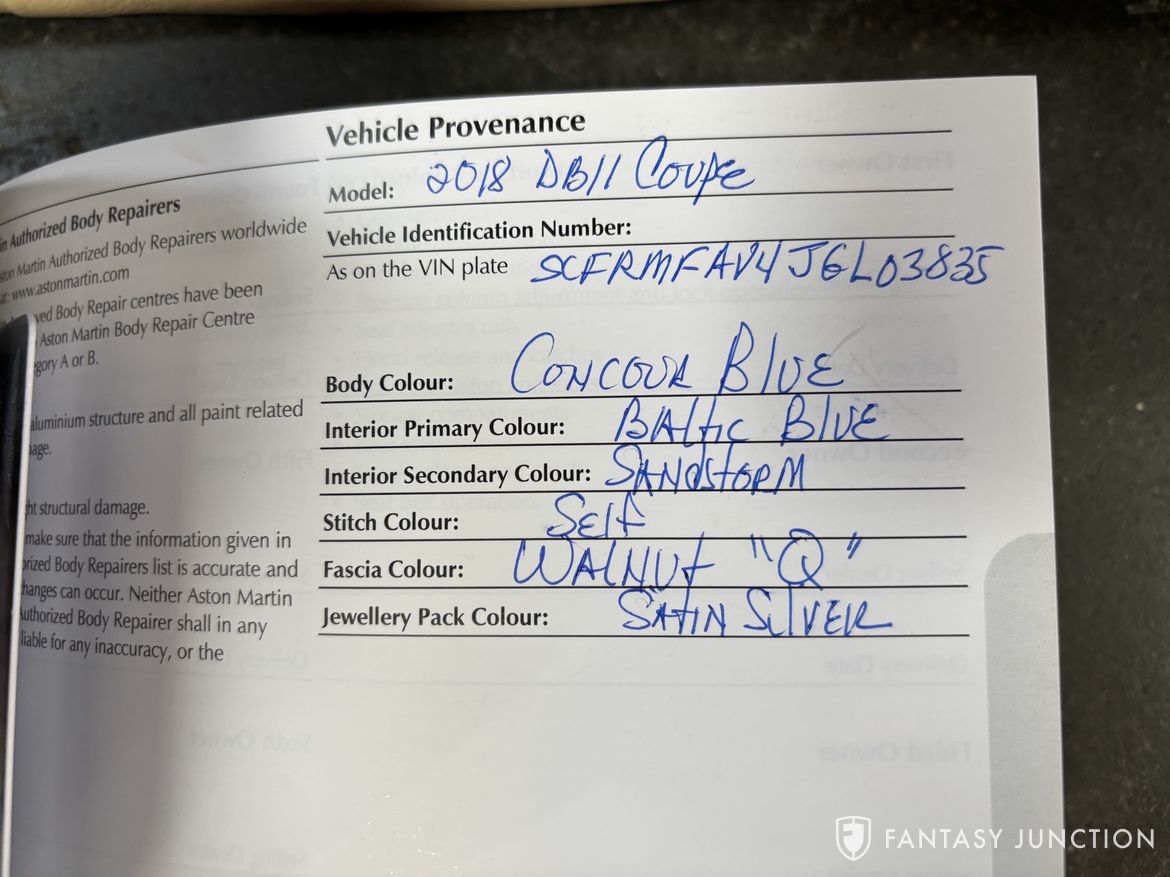 in Authorized Body Repairers
ston Martin Authorized Body Repairers worldwide
at: www.astonmartin.com
ved Body Repair centres have been
Aston Martin Body Repair Centre
gory A or B.
aluminium structure and all paint related
age.
ht structural damage.
make sure that the information given in
orized Body Repairers list is accurate and
hanges can occur. Neither Aston Martin
Authorized Body Repairer shall in any
liable for any inaccuracy, or the
Vehicle Provenance
Model: 2018 DB11 Coupe
Vehicle Identification Number:
As on the VIN plate SCFRMFAV4JGL03835
Body Colour: CONCOUR BLUE
Interior Primary Colour: BAltic BlUE
Interior Secondary Colour: SANdstorM
Stitch Colour: Self
Fascia Colour: WALNUt "Q"
Jewellery Pack Colour: SAtIN SILVER
FANTASY JUNCTION